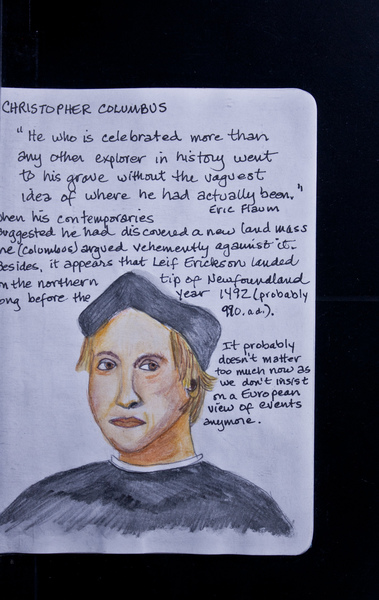 CHRISTOPHER COLUMBUS
"He who is celebrated more than
any other explorer in history went
to his grave without the vaguest
idea of where he had actually been."
Eric Flaum
hen his contemporaries
uggested he had discovered a new land mass
he (columbus) argued vehemently against it.
Besides, it appears that Leif Erickson landed
n the northern tip of Newfoundland
ong before the year 1492 (probably
980. a.d.).
It probably
doesn't matter
too much now as
we don't insist
on a European
view of events
anymore.